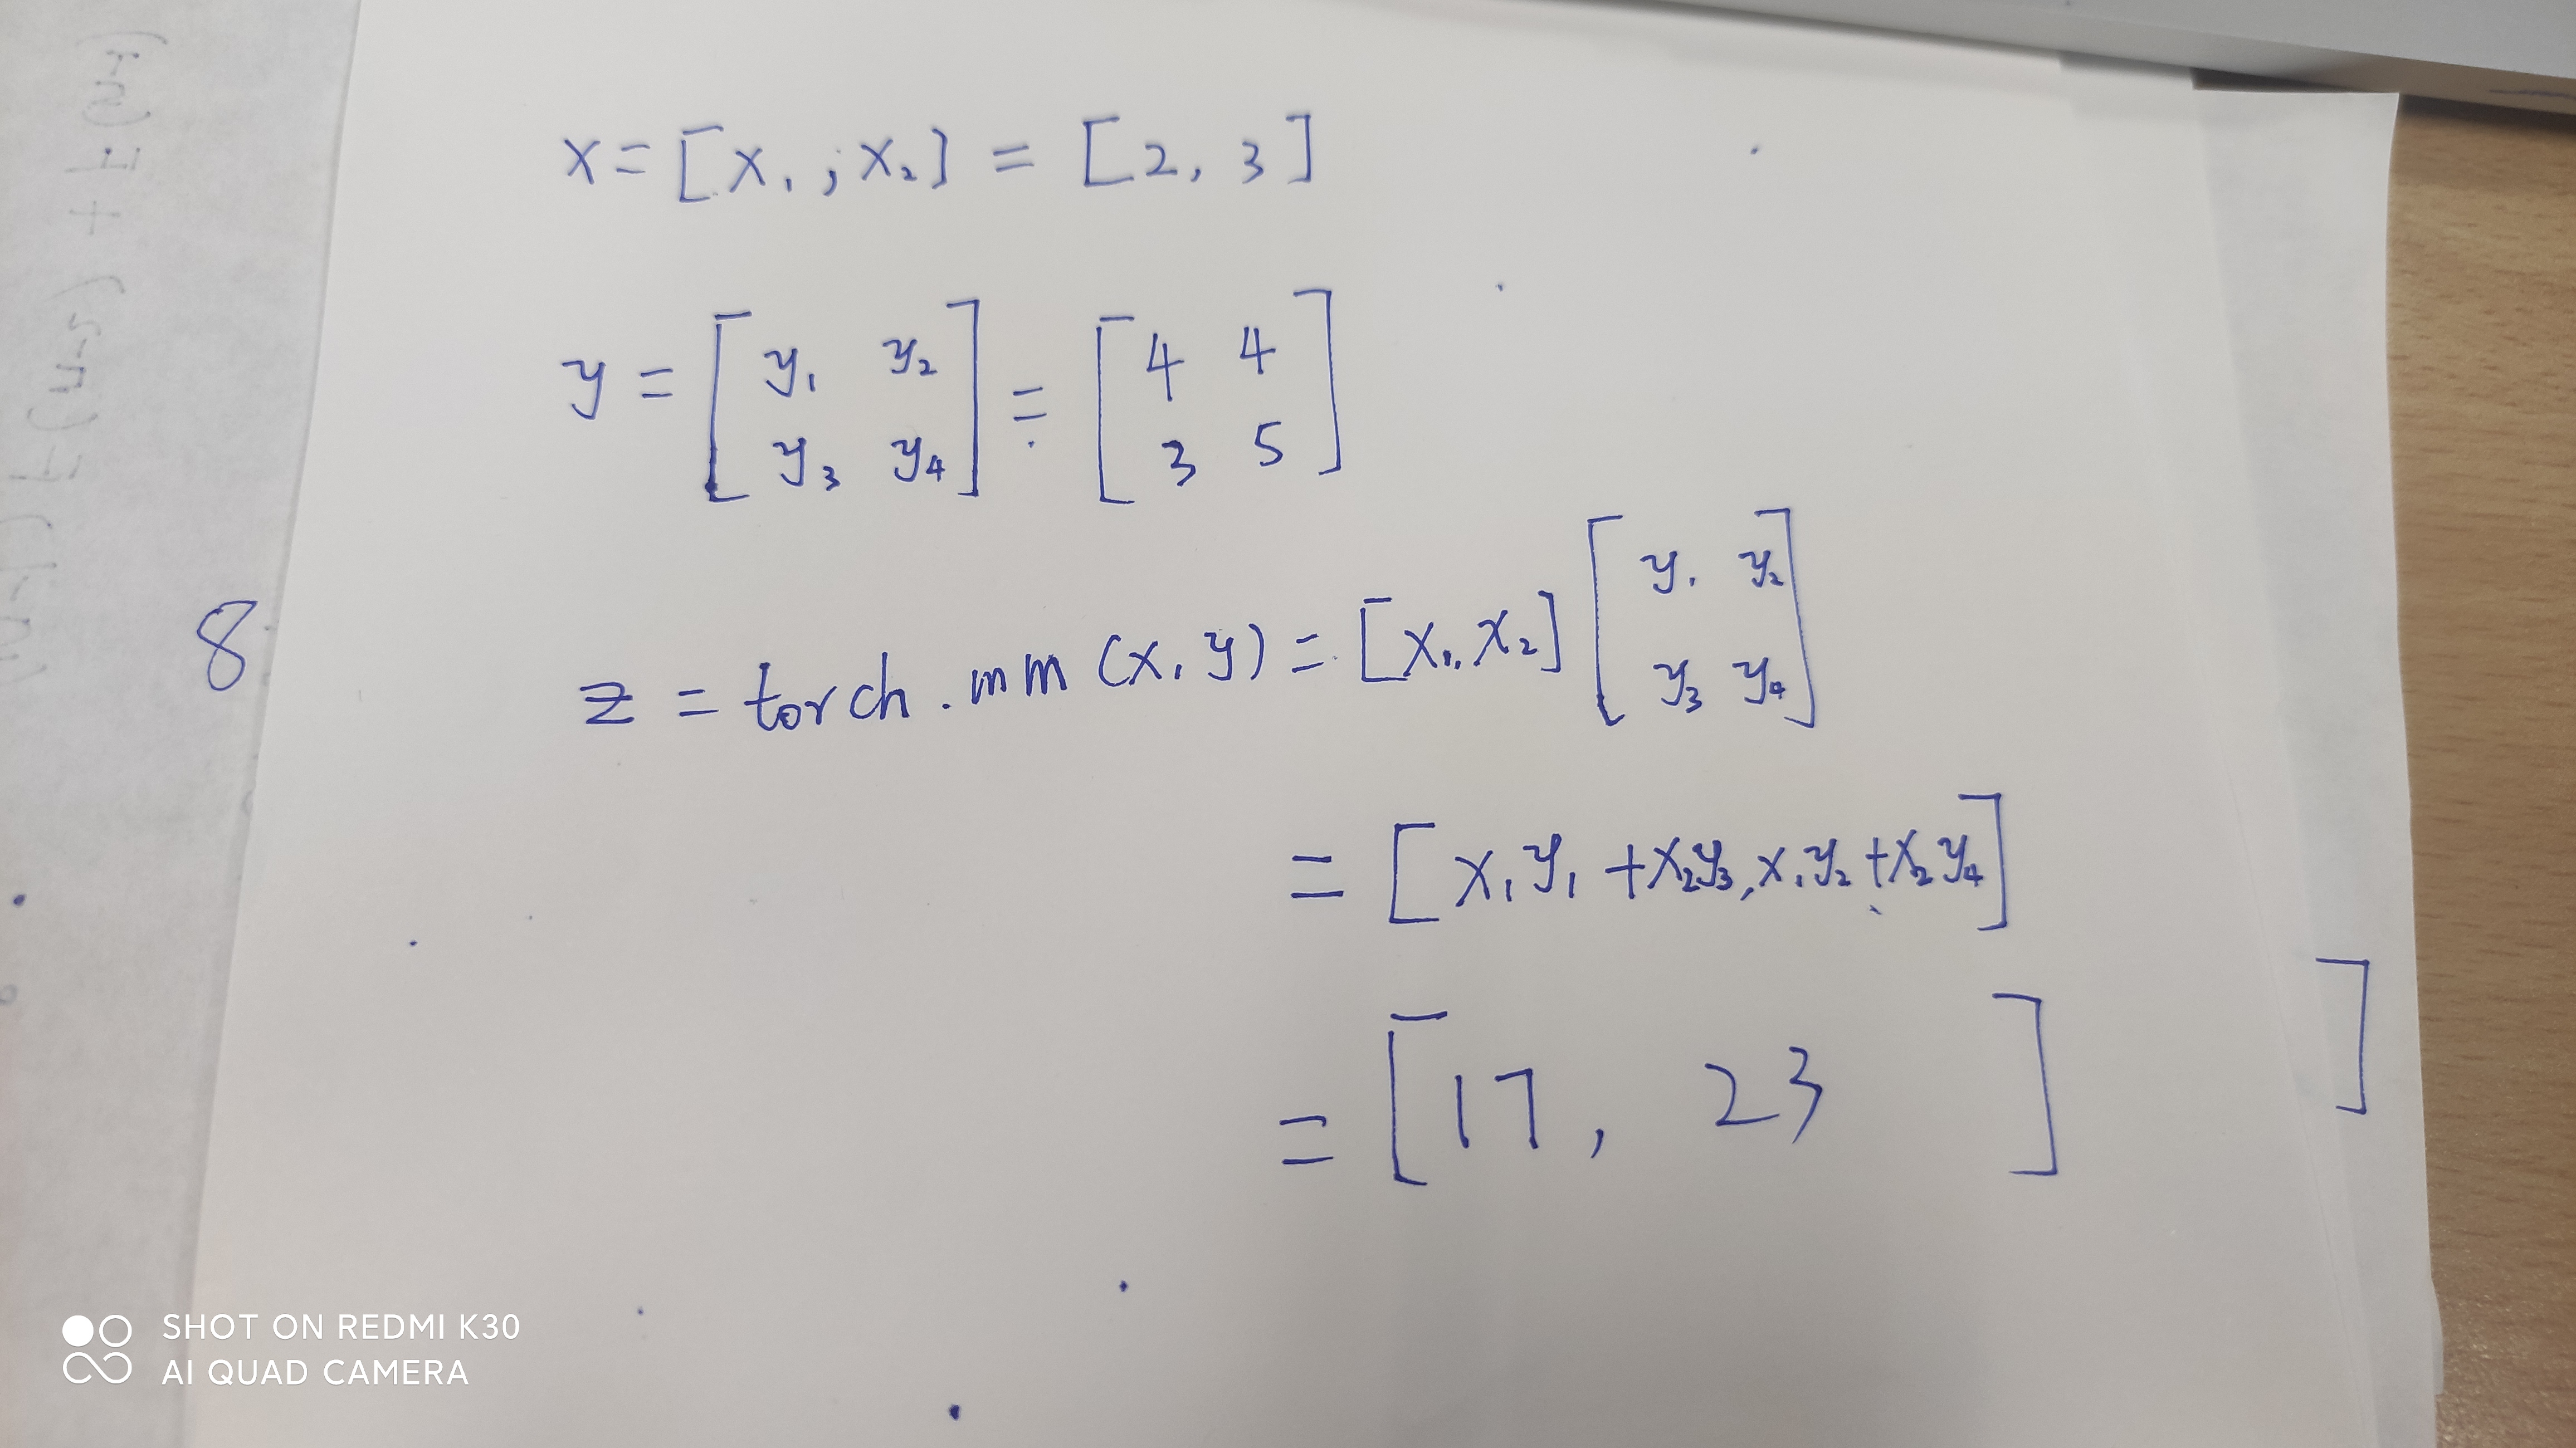 x = [x₁, ; x₂] = [2, 3]
y = [y₁ y₂
y₃ y₄] = [4 4
3 5]
8
z = torch.mm(x, y) = [x₁, x₂] [y₁ y₂
y₃ y₄]
= [x₁y₁ + x₂y₃, x₁y₂ + x₂y₄]
= [17, 23 ]
]
SHOT ON REDMI K30
AI QUAD CAMERA